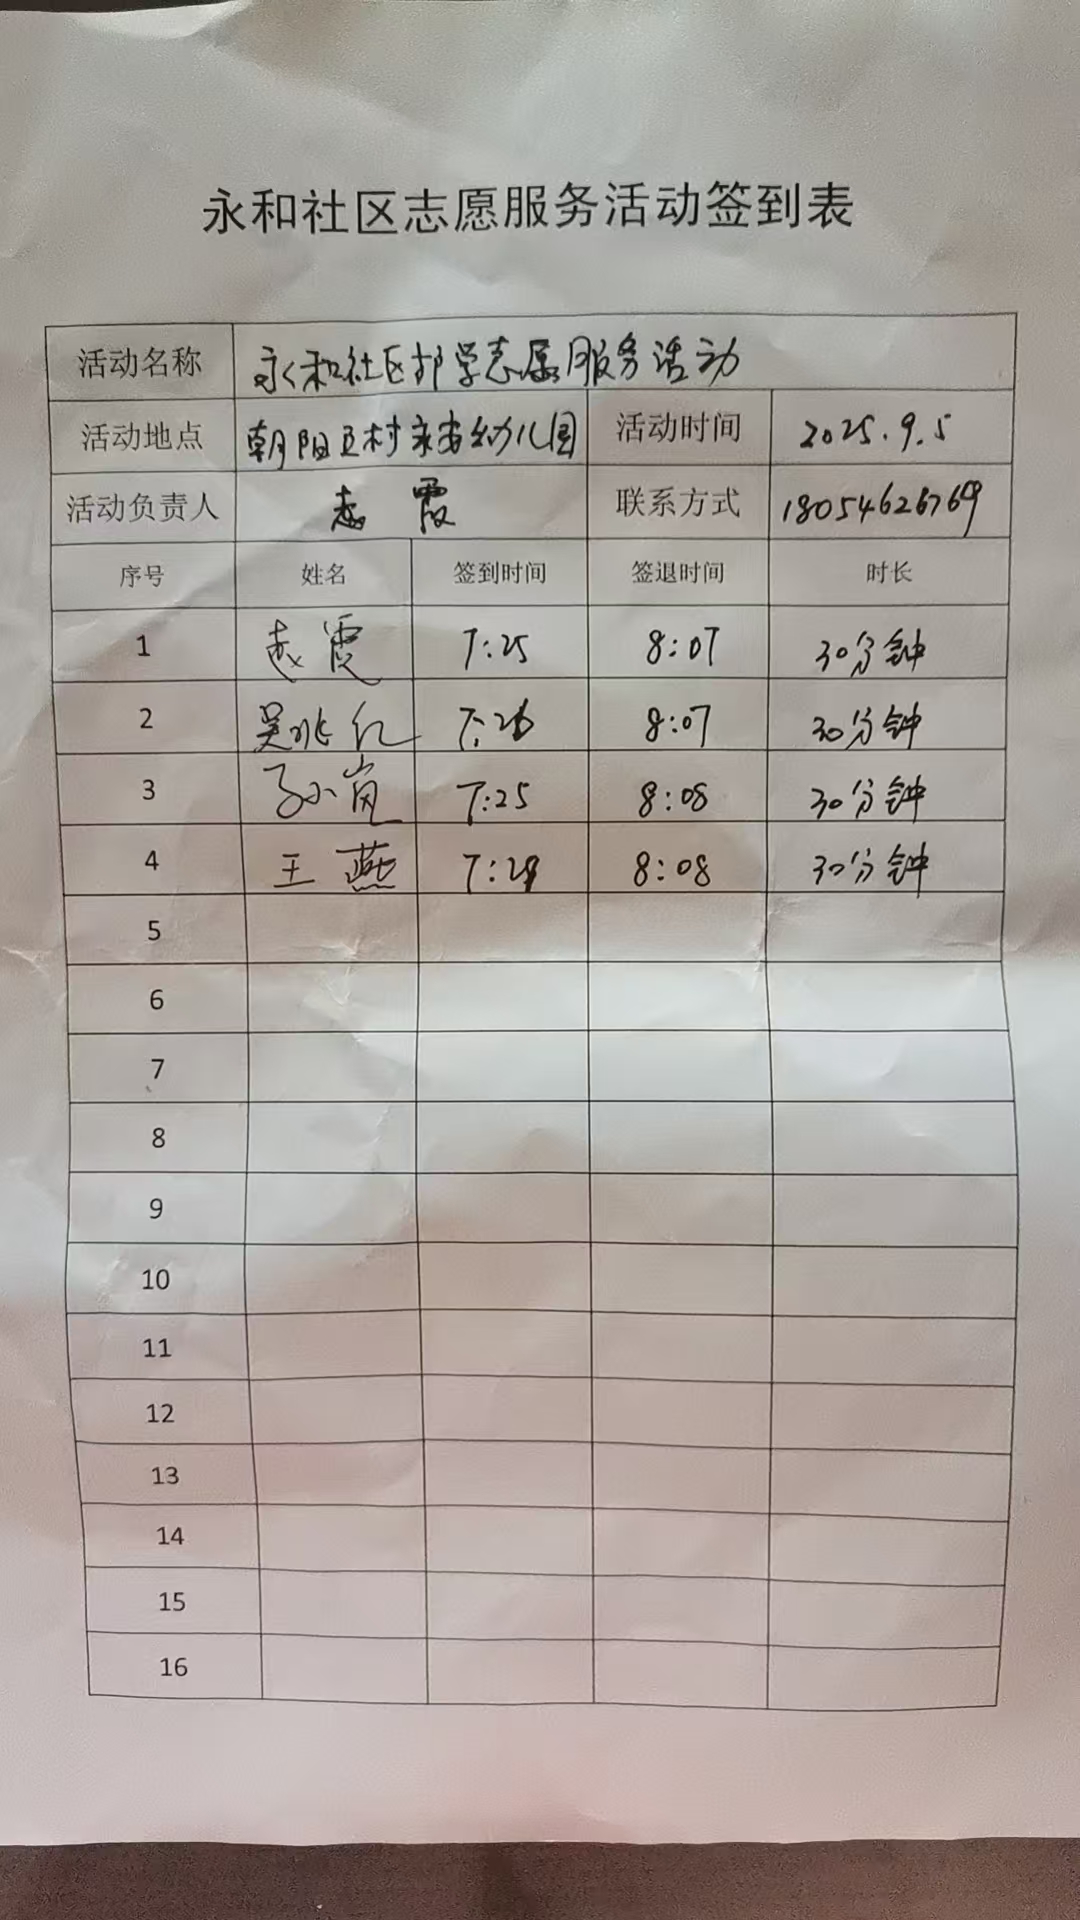 永和社区志愿服务活动签到表
活动名称 永和社区护学志愿服务活动
活动地点 朝阳五村永安幼儿园 活动时间 2025.9.5
活动负责人 霞 联系方式 18054626769
序号 姓名 签到时间 签退时间 时长
1 霞 7:25 8:07 30分钟
2 吴兆红 7:26 8:07 30分钟
3 孙岚 7:25 8:08 30分钟
4 王燕 7:2 8:08 30分钟
5
6
7
8
9
10
11
12
13
14
15
16